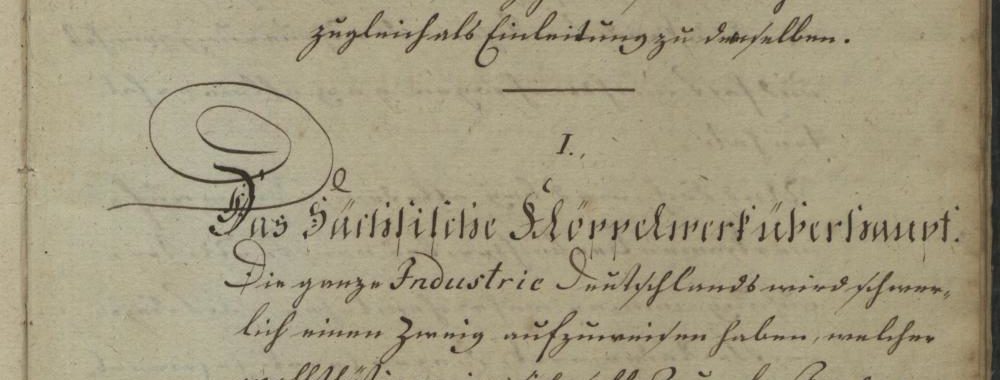 zugleich als Einleitung zu denselben.
I.
Das Sächsische Klöppelwerk überhaupt.
Die ganze Industrie Deutschlands wird schwer-
lich einen Zweig aufzuweisen haben, welcher